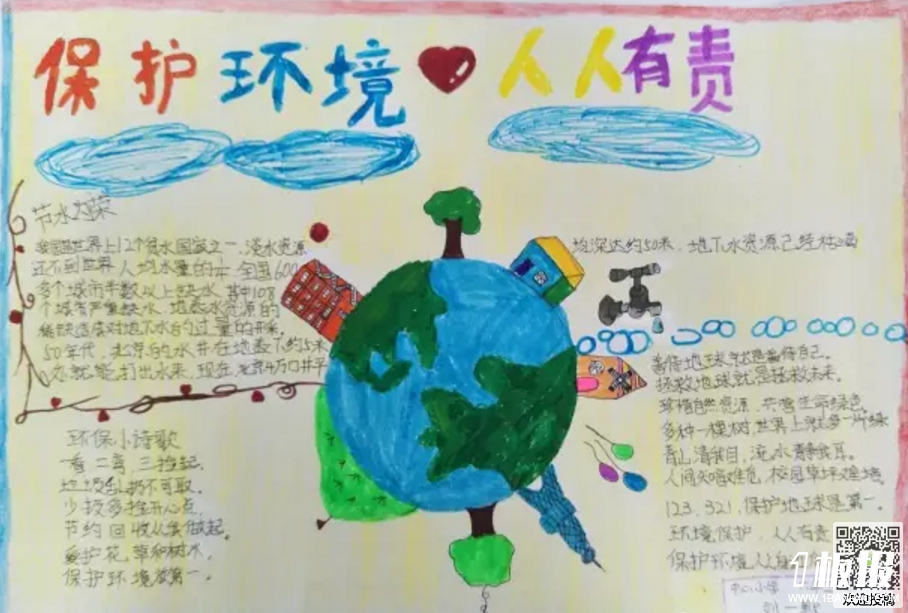 保护环境 人人有责
节水为荣
我国是世界上12个贫水国家之一,淡水资源
还不到世界人均水量的 全国600
多个城市半数以上缺水,其中108
个城市严重缺水,地表水资源的
稀缺造成对地下水的过量的开采。
50年代,北京的水井在地表下约5米
就能打出水来,现在,北京4万口井平
均深达约50米,地下水资源已经枯竭
环保小诗歌
一看二弯,三捡起,
垃圾乱扔不可取。
少投多捡开心点,
节约回收从我做起。
爱护花,草和树木,
保护环境放第一。
善待地球就是善待自己。
拯救地球就是拯救未来。
珍惜自然资源,共营生命绿色。
多种一棵树,世界上就多一片绿
青山清我目,流水静我耳。
人间 难觅,校园草坪难
123,321,保护地球是第一
环境保护,人人有责
保护环境人人
中心小学
1板报
WWW.1BANBAO.COM
欢迎投稿